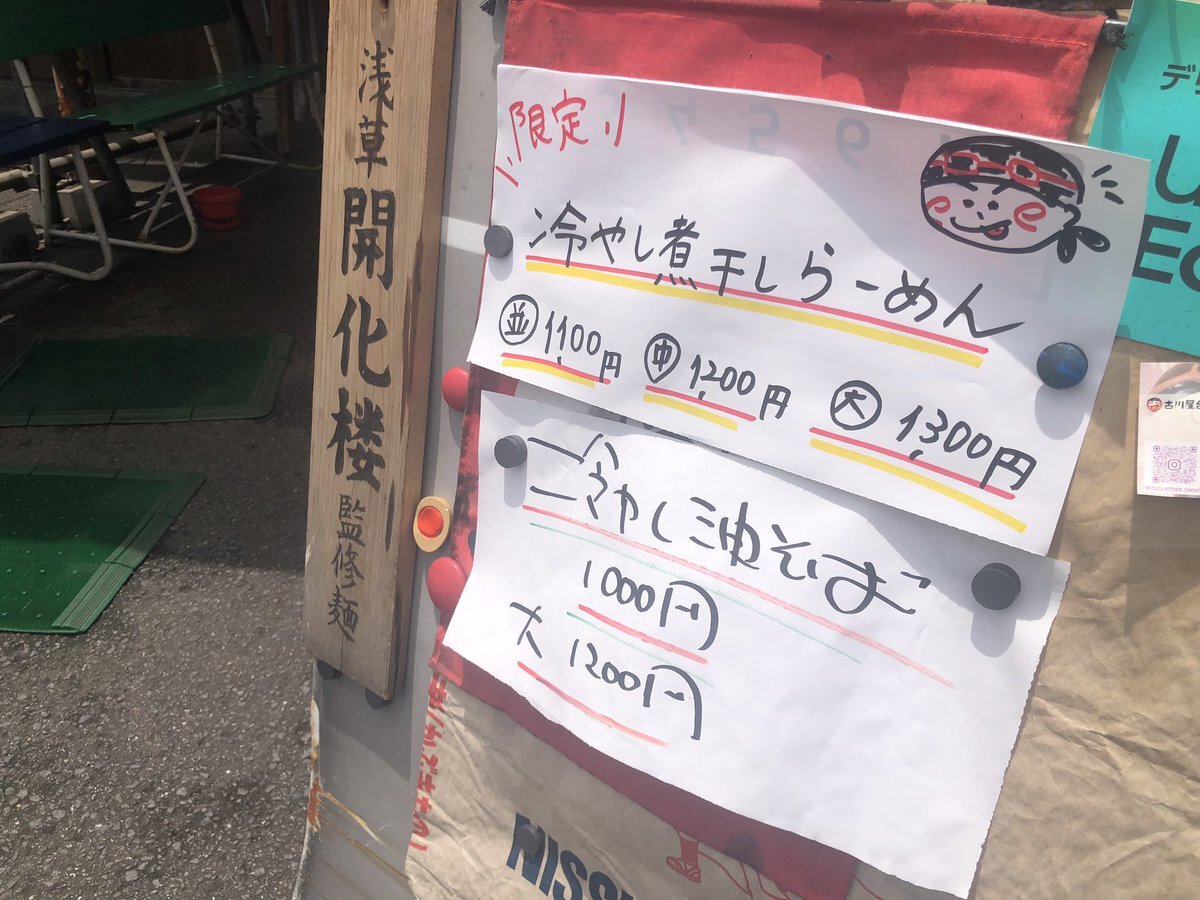 浅草
開化楼
監修麺
限定
冷やし煮干しらーめん
並 1,100円
中 1,200円
大 1,300円
冷やし油そば
1000円
大 1200円
NISS
古川屋台
デ
U
EC